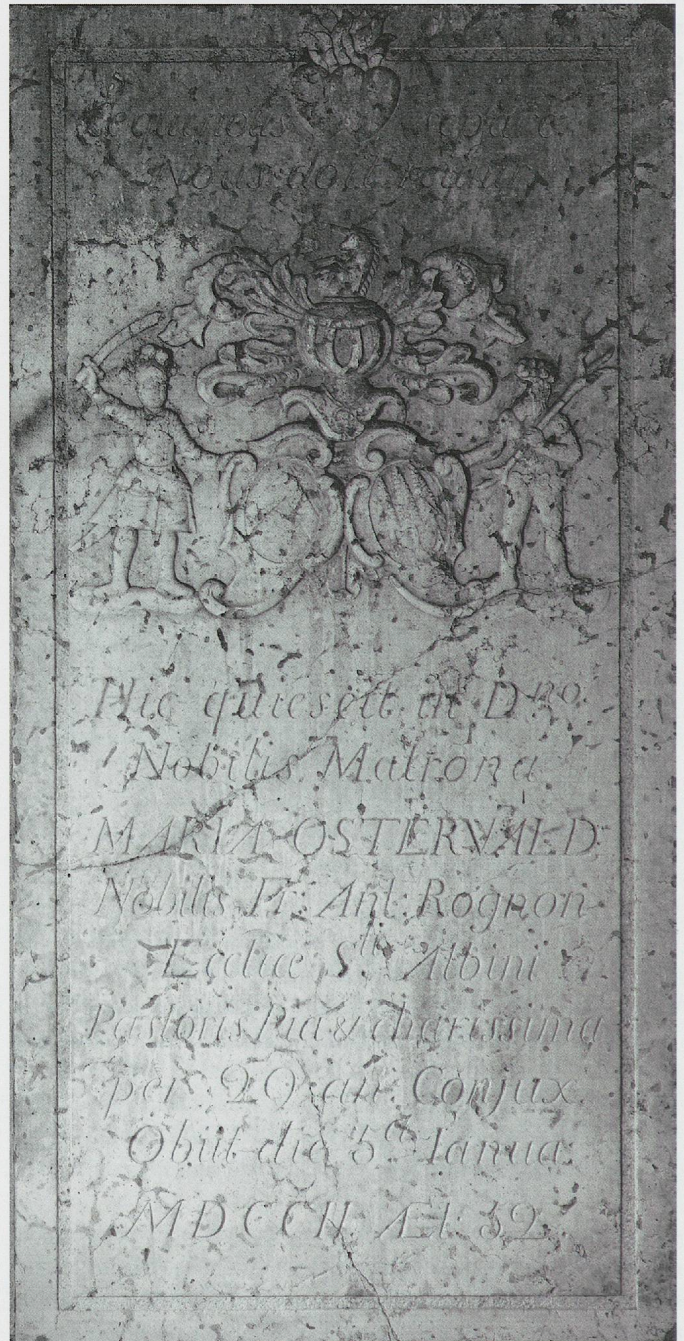 Ce qui nous separe
Nous doit reunir
Hic quiescit in Dno.
Nobilis Matrona
MARIA OSTERVALD
Nobilis Fr: Ant: Rognon
Eccliæ Sti Albini
Pastoris Pia & charissima
per 20 an: Conjux.
Obiit die 5a Ianua:
MDCCII Æt: 52